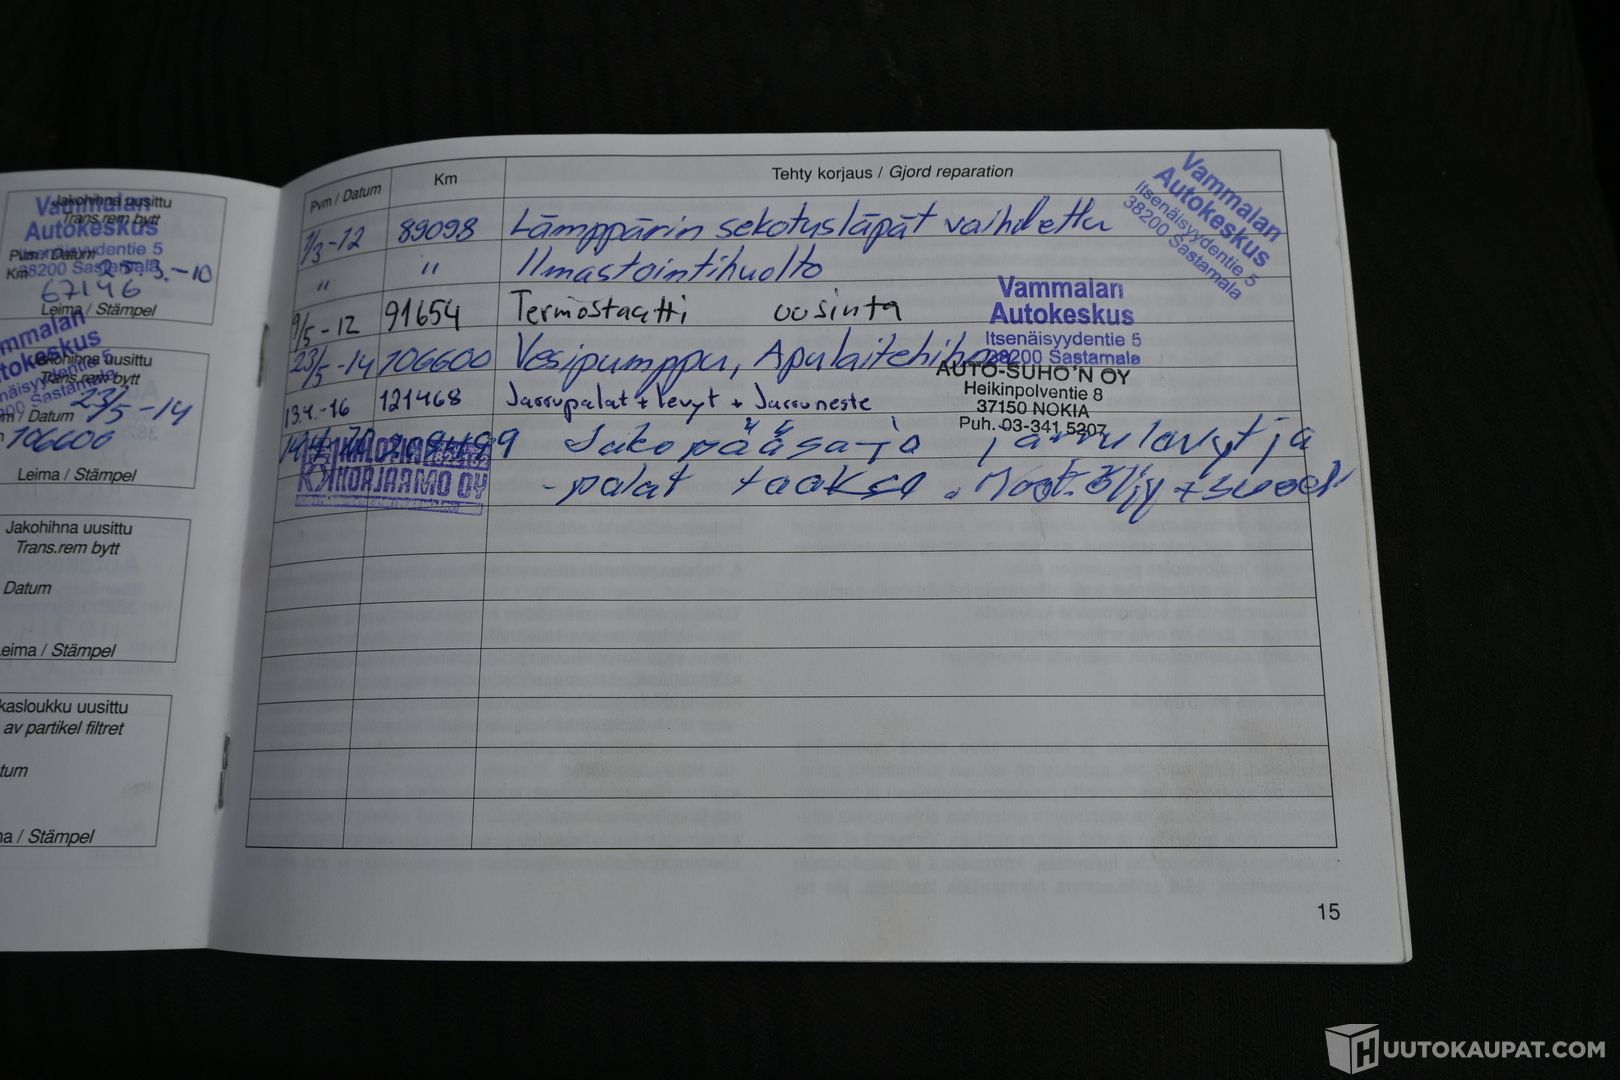 Jakohihna uusittu
Trans.rem bytt
Vammalan
Autokeskus
Itsenäisyydentie 5
38200 Sastamala
Pvm / Datum
Km
3.-10
67146
Leima / Stämpel
Jakohihna uusittu
Trans.rem bytt
/ Datum 23/5-14
106600
Leima / Stämpel
Jakohihna uusittu
Trans.rem bytt
Datum
eima / Stämpel
kasloukku uusittu
av partikel filtret
tum
na / Stämpel
Pvm / Datum Km Tehty korjaus / Gjord reparation
/3-12 89098 Lämppärin sekotusläpät vaihdettu
" " Ilmastointihuolto
9/5-12 91654 Termostaatti uusinta
23/5-14 106600 Vesipumppu, Apulaitehihna
13.4.-16 121468 Jarrupalat + levyt + Jarruneste
Jakopääsarja jarrulevyt ja
-palat taakse. Moot.öljy +
Vammalan
Autokeskus
Itsenäisyydentie 5
38200 Sastamala
Vammalan
Autokeskus
Itsenäisyydentie 5
38200 Sastamala
AUTO-SUHO'N OY
Heikinpolventie 8
37150 NOKIA
Puh. 03-341 5207
KORJAAMO OY
15
HUUTOKAUPAT.COM